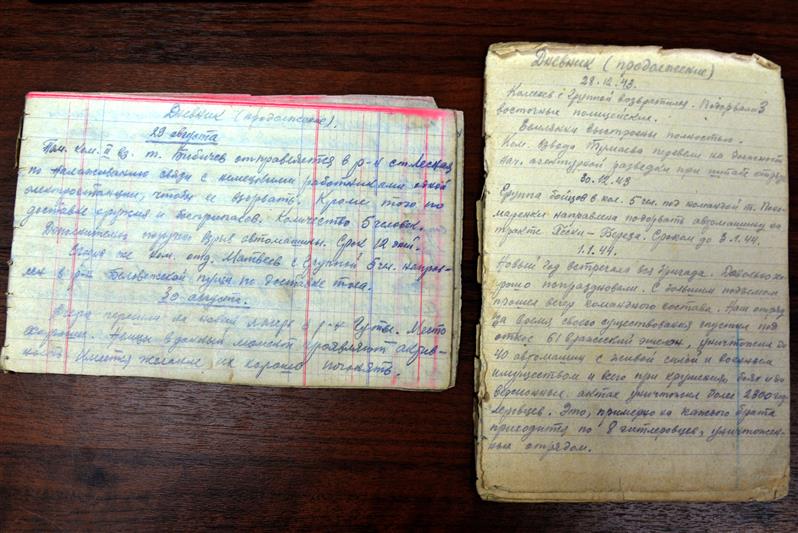 Дневник (продолжение).
29 августа
Пом. ком. II вз. т. Бибичев отправляется в р-н ст. Лесная
по налаживанию связи с немецкими работниками одной
электростанции, чтобы ее взорвать. Кроме того по
доставке оружия и боеприпасов. Количество 5 человек.
Дополнительно поручен взрыв автомашины. Срок 12 дней.
Сегодня же ком. отд. Матвеев с группой 5 чел. направ-
лен в р-н Беловежской пущи по доставке тола.
30 августа.
Вчера перешли на новый лагерь в р-н Гутве. Место
хорошее. Немцы в данный момент проявляют актив-
ность. Имеется желание их хорошо погонять.
Дневник (продолжение)
28.12.43.
с группой возвратился. Подорвали 3
восточных полицейских.
Землянки выстроены полностью.
Ком. взвода Трумаева перевели на должность
нач. агентурной разведки при штабе отряда
30.12.43
Группа бойцов в кол. 5 чел. под командой т. Поно-
маренки направлена подорвать автомашину на
тракте Пески - Береза. Сроком до 3.1.44.
1.1.44.
Новый год встречала вся бригада. Довольно хо-
рошо попраздновали. С большим подъемом
прошел вечер командного состава. Наш отряд
за время своего существования спустил под
откос 61 вражеский эшелон. Уничтожено до
40 автомашин с живой силой и военным
имуществом и всего при крушениях, боях и ди-
версионных актах уничтожил более 2300 гит-
леровцев. Это, примерно на каждого брата
приходится по 8 гитлеровцев, уничтожен-
ных отрядом.